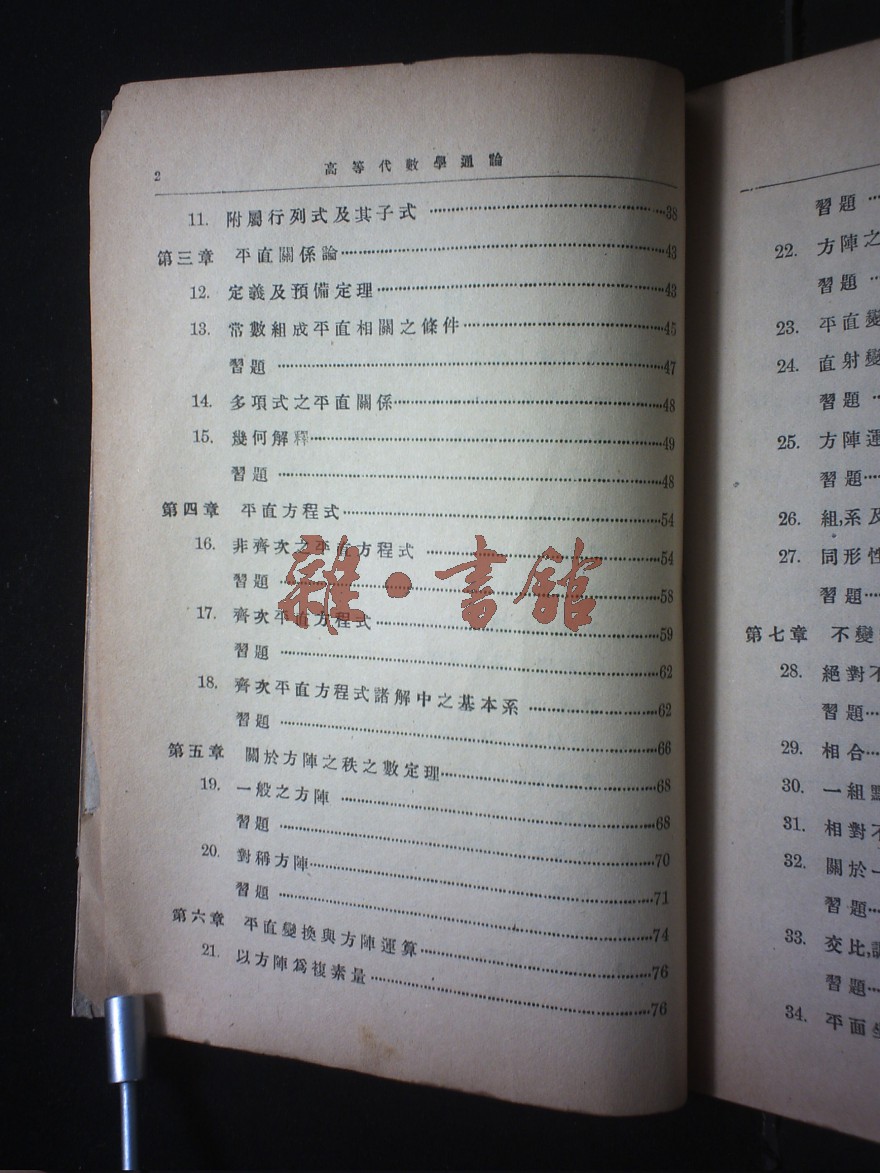 2
高等代數學通論
11. 附屬行列式及其子式 38
第三章 平直關係論 43
12. 定義及預備定理 43
13. 常數組成平直相關之條件 45
習題 47
14. 多項式之平直關係 48
15. 幾何解釋 49
習題 48
第四章 平直方程式 54
16. 非齊次之平直方程式 54
習題 58
17. 齊次平直方程式 59
習題 62
18. 齊次平直方程式諸解中之基本系 62
習題 66
第五章 關於方陣之秩之數定理 68
19. 一般之方陣 68
習題 70
20. 對稱方陣 71
習題 74
第六章 平直變換與方陣運算 76
21. 以方陣爲複素量 76
雜·書館
習題
22. 方陣之
習題
23. 平直變
24. 直射變
習題
25. 方陣運
習題
26. 組,系及
27. 同形性
習題
第七章 不變
28. 絕對不
習題
29. 相合
30. 一組
31. 相對不
32. 關於一
習題
33. 交比,
習題
34. 平面